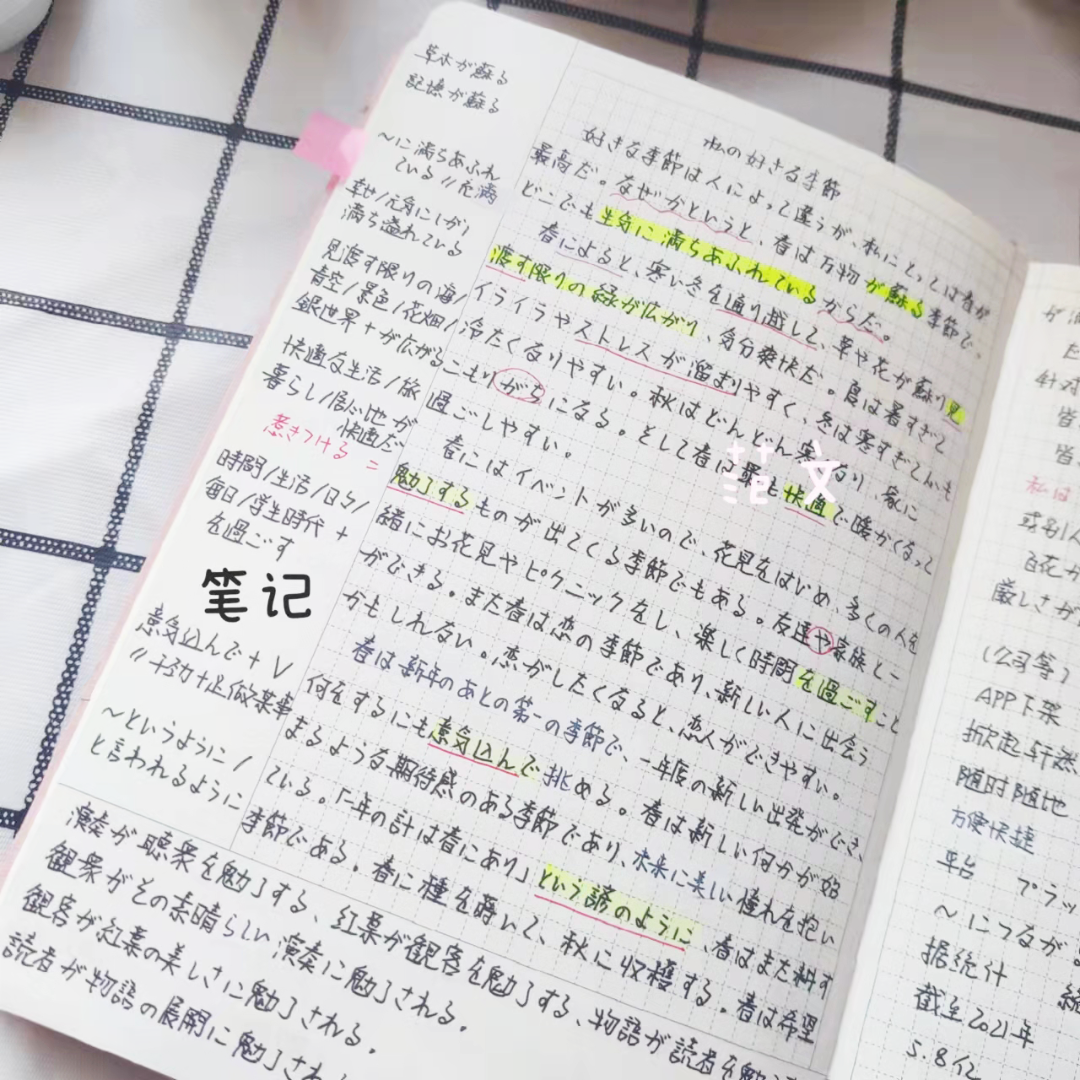 草木が蘇る
記憶が蘇る
～に満ちあふれ
ている〃充満
満ち溢れている
見渡す限りの海/
青空/景色/花畑/
銀世界+が広がる
快適な生活/旅
暮らし/居心地が
快適だ
惹きつける =
時間/生活/日々/
毎日/学生時代 +
を過ごす
笔记
意気込んで+V
〃干劲十足做某事
～というように/
と言われるように
私の好きる季節
好きな季節は人によって違うが、私にとっては春が
最高だ。なぜかというと、春は万物が蘇る季節で、
どこでも生気に満ちあふれているからだ。
春によると、寒い冬を通り越して、草や花が蘇り見
渡す限りの緑が広がり、気分爽快だ。夏は暑すぎて
イライラやストレスが溜まりやすく、冬は寒すぎて
冷たくなりやすい。秋はどんどん寒くなり、家に
こもりがちになる。そして春は最も快適で暖かくなって
過ごしやすい。
范文
春にはイベントが多いので、花見をはじめ、多くの人を
魅了するものが出てくる季節でもある。友達や家族と一
緒にお花見やピクニックをし、楽しく時間を過ごすこと
ができる。また春は恋の季節であり、新しい人に出会う
かもしれない。恋がしたくなると、恋人ができやすい。
春は新年のあとの第一の季節で、一年度の新しい出発ができ、
何をするにも意気込んで挑める。春は新しい何かが始
まるような期待感のある季節であり、未来に美しい憧れを抱い
ている。「一年の計は春にあり」という諺のように、春はまた耕す
季節である。春に種を蒔いて、秋に収穫する。春は希望
演奏が聴衆を魅了する、紅葉が観客を魅了する、物語が読者を魅了
観衆がその素晴らしい演奏に魅了される。
観客が紅葉の美しさに魅了される。
読者が物語の展開に魅了され
針对
皆
皆
私は
或别人
百花が
厳しさが
(公司等)
APP下架
掀起轩然
随时随地
方便快捷
平台 プラッ
～につながる
据统计
截至2021年
5.8亿